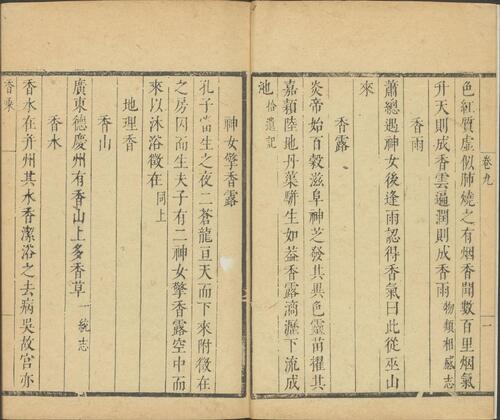 卷九
一
色紅質虛似肺燒之有烟香聞數百里烟氣
升天則成香雲遍潤則成香雨物類相感志
香雨
蕭總遇神女後逢雨認得香氣曰此從巫山
來
香露
炎帝始百穀滋阜神芝發其異色靈苗擢其
嘉穎陸地丹蕖駢生如葢香露滴瀝下流成
池拾遺記
神女擎香露
孔子當生之夜二蒼龍亘天而下來附徵在
之房因而生夫子有二神女擎香露空中而
來以沐浴徵在同上
地理香
香山
廣東德慶州有香山上多香草一統志
香水
香水在并州其水香潔浴之去病吳故宮亦
香乘